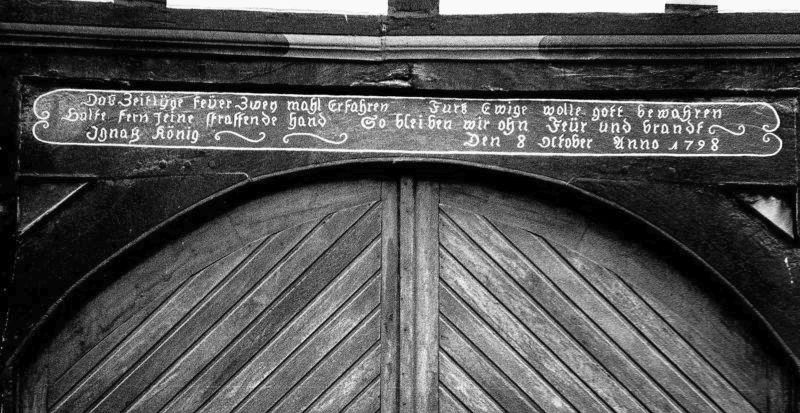 Das Zeitlüge feüer Zwey mahl Erfahren Furs Ewige wolle gott bewahren
Halte fern seine straffende hand So bleiben wir ohn Feür und brandt
Ignaß König Den 8 October Anno 1798